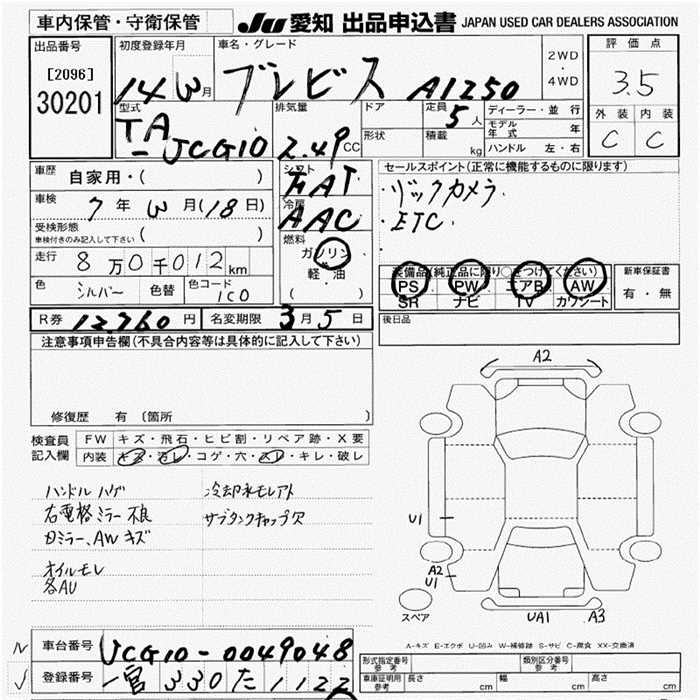 車内保管・守衛保管
JU 愛知 出品申込書 JAPAN USED CAR DEALERS ASSOCIATION
出品番号
[2096]
30201
初度登録年月
14 3月
車名・グレード
ブレビス A1250
2WD
・
4WD
評価点
3.5
外装 内装
C C
型式
TA-JCG10
排気量
2.49 CC
ドア
形状
定員
5人
積載 kg
ディーラー・並行
モデル年式 年
ハンドル 左・右
車歴 自家用・( )
車検 7年3月(18日)
受検形態
車検付きのみ記入して下さい ( )
走行 8万0千012km
色 シルバー 色替 色コード 1C0
シフト
FAT
冷房
AAC
燃料
ガソリン
軽・油
セールスポイント(正常に機能するものに限ります)
・リックカメラ・
・ETC・
・
装備品(純正品に限り○をつけてください)
PS PW エアB AW
SR ナビ TV カワシート
新車保証書
有・無
R券 12,760円 名変期限 3月5日
後日品
注意事項申告欄(不具合内容等は具体的に記入して下さい)
修復歴 有 (箇所 )
検査員記入欄
FW キズ・飛石・ヒビ割・リペア跡・X要
内装 キズ・汚レ・コゲ・穴・スレ・キレ・破レ
ハンドル ハゲ 冷却水モレアト
右電格ミラー不良 サブタンクキャップ欠
ロミラー、AWキズ
オイルモレ
各AU
A2
U1
A2
U1
スペア
UA1 A3
A-キズ E-エクボ U-凹み W-補修跡 S-サビ C-腐食 XX-交換済
車台番号 JCG10-0049048
登録番号 一宮 330 た 1122
形式指定番号
参考
類別区分番号
参考
車庫証明用
参考
長さ cm 幅 cm 高さ cm